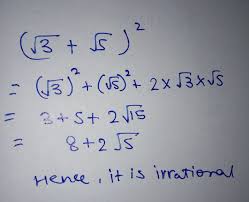 (√3 + √5)²
= (√3)² + (√5)² + 2×√3×√5
= 3+5+2√15
= 8+2√5
Hence, it is irrational